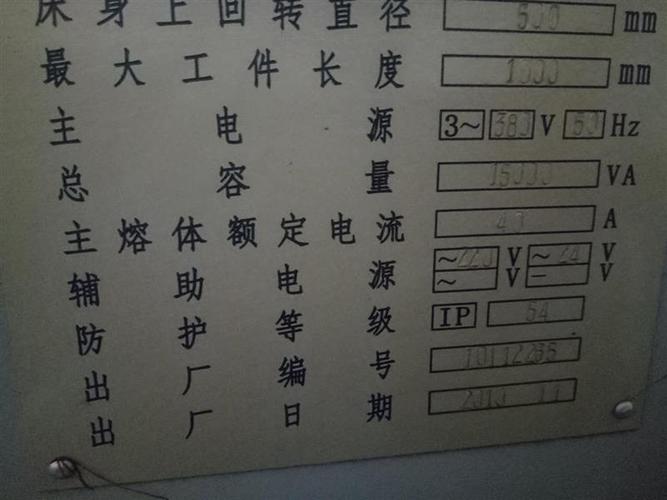 床身上回转直径 500 mm
最大工件长度 1000 mm
主电源 3~ 380 V 50 Hz
总容量 15000 VA
主熔体额定电流 40 A
辅助电源 ~220 V ~24 V
~ V - V
防护等级 IP 54
出厂编号
出厂日期 2010